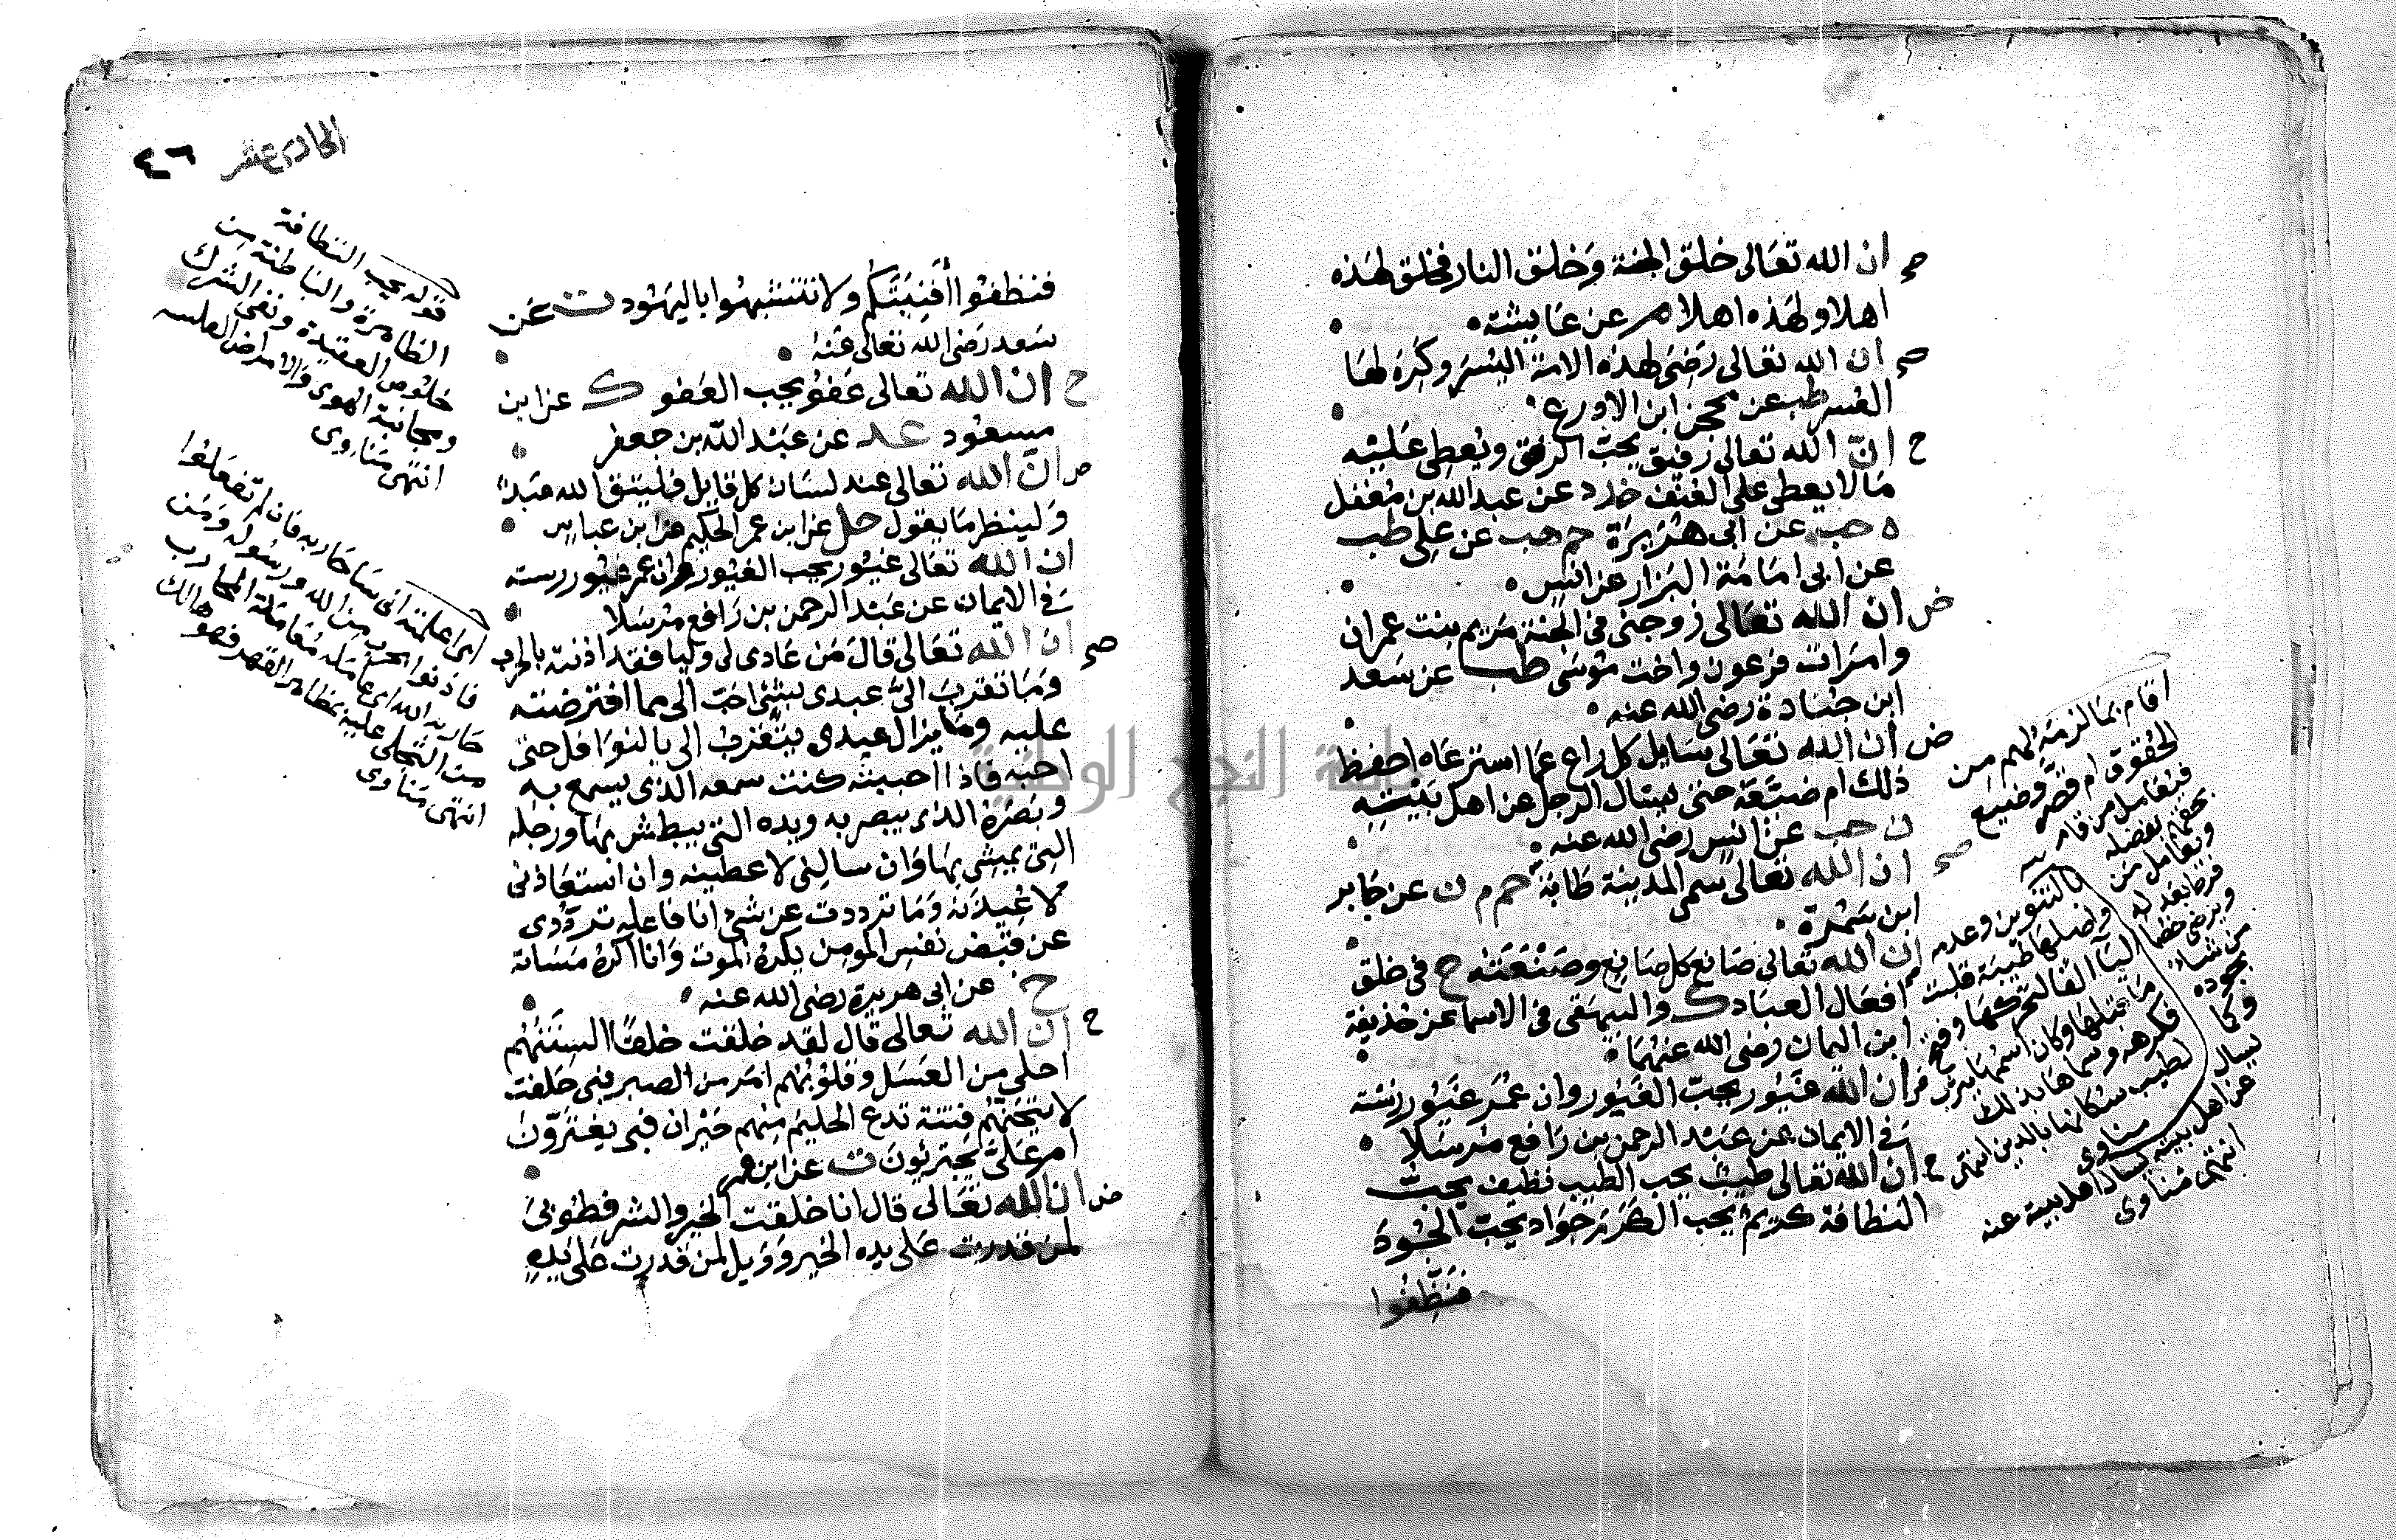 صح ان الله تعالى خلق الجنة وخلق النار فخلق لهذه
اهلا ولهذه اهلا م عن عايشة
صح ان الله تعالى رضى لهذه الامة اليسر وكره لها
العسر طب عن محجن ابن الادرع
ح ان الله تعالى رفيق يحب الرفق ويعطى عليه
مالا يعطى على العنف خد د عن عبد الله بن مغفل
ه حب عن ابى هريرة حم هب عن على طب
عن ابى امامة البزار عن انس
ض ان الله تعالى زوجنى فى الجنة مريم بنت عمران
وامرات فرعون واخت موسى طب عن سعد
ابن جنادة رضى الله عنه
ض ان الله تعالى سايل كل راع عما استرعاه احفظ
ذلك ام ضيعه حتى يسال الرجل عن اهل بيته
ن حب عن انس رضى الله عنه
صح ان الله تعالى سمى المدينة طابة حم م ن عن جابر
ابن سمرة
ان الله تعالى صانع كل صانع وصنعته خ فى خلق
افعال العباد ك والبيهقى فى الاسما عن حذيفة
ابن اليمان رضى الله عنهما
ان الله غيور يحب الغيور وان عمر غيور رسته
فى الايمان عن عبد الرحمن بن رافع مرسلا
ح ان الله تعالى طيب يحب الطيب نظيف يحب
النظافة كريم يحب الكرم جواد يحب الجود
فنظفوا
اقام بما لزمه لهم من
الحقوق ام قصر وضيع
فيعامل من قام
بحقهم بفضله
ويعامل من
بالتنوين وعدمه
واصلها طيبة قلبت
اليا الفا لتحركها وفتح
ما قبلها وكان اسمها يثرب
فكرهه وسماها بذلك
لطيب سكانها بالدين انتهى
مناوى
وكما
يسال
عن اهل بيته يسال اهل بيته عنه
انتهى مناوى
الحادى عشر ٤٦
فنظفوا أفنيتكم ولا تتشبهوا باليهود ت عن
سعد رضى الله تعالى عنه
ح ان الله تعالى عفو يحب العفو ك عن ابن
مسعود عد عن عبد الله بن جعفر
ض ان الله تعالى عند لسان كل قايل فليتق الله عبد
ولينظر ما يقول حل عن ابن عمر الحكيم عن ابن عباس
ان الله تعالى غيور يحب الغيور وان عمر غيور رسته
فى الايمان عن عبد الرحمن بن رافع مرسلا
صح ان الله تعالى قال من عادى لى وليا فقد اذنته بالحرب
وما تقرب الى عبدى بشئ احب الى مما افترضته
عليه وما يزال عبدى يتقرب الى بالنوافل حتى
احبه فاذا احببته كنت سمعه الذى يسمع به
وبصره الذى يبصر به ويده التى يبطش بها ورجله
التى يمشى بها وان سالنى لاعطينه وان استعاذنى
لاعيذنه وما ترددت عن شئ انا فاعله ترددى
عن قبض نفس المومن يكره الموت وانا اكره مساته
خ عن ابى هريرة رضى الله عنه
ح ان الله تعالى قال لقد خلقت خلقا السنتهم
احلى من العسل وقلوبهم امر من الصبر فبى حلفت
لاتيحنهم فتنة تدع الحليم منهم حيران فبى يغترون
ام على يجتريون ت عن ابن عمر
ض ان الله تعالى قال انا خلقت الخير والشر فطوبى
لمن قدرت على يده الخير وويل لمن قدرت على يده
قوله يحب النظافة
الظاهرة والباطنة من
خلوص العقيدة ونفى الشرك
ومجانبة الهوى والامراض القلبيه
انتهى مناوى
اى اعلمته انى ساحاربه فان لم تفعلوا
فاذنوا بحرب من الله ورسوله ومن
حاربه الله اى عامله معاملة المحارب
من التجلى عليه بمظاهر القهر فهو هالك
انتهى مناوى